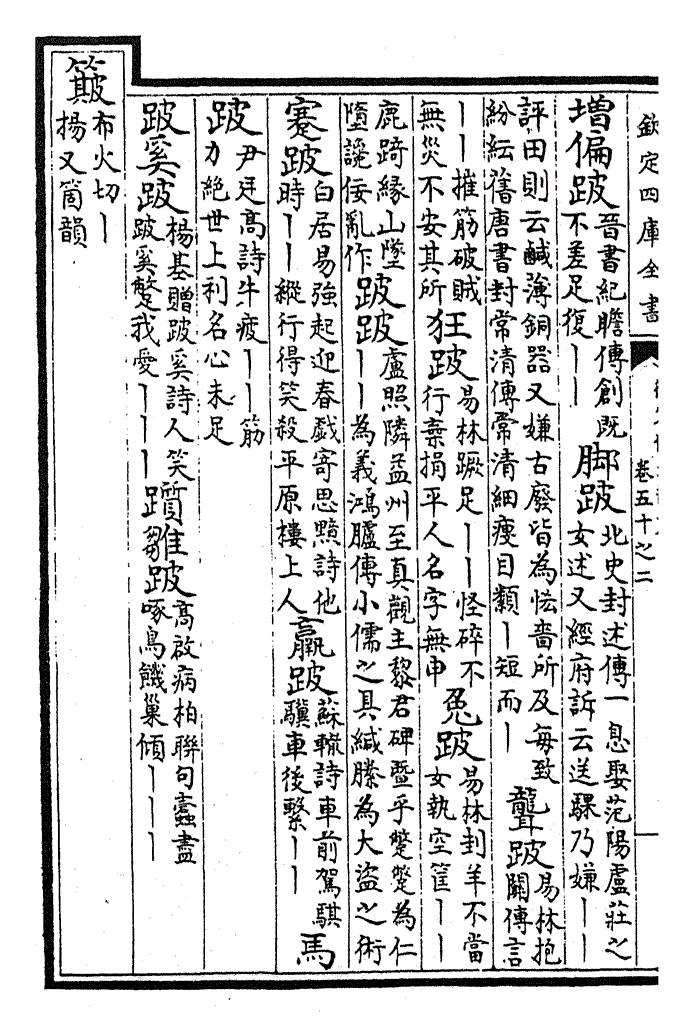 欽定四庫全書
卷五十之二
增偏跛晉書紀瞻傳創既不差足復丨丨脚跛北史封述傳一息娶范陽盧莊之女述又經府訴云送騾乃嫌丨丨
評田則云鹹薄銅器又嫌古廢皆為怯嗇所及每致紛紜舊唐書封常清傳常清細瘦目纇丨短而丨聾跛易林抱關傳言
丨丨摧筋破賊無災不安其所狂跛易林蹶足丨丨怪碎不行棄捐平人名字無申兔跛易林刲羊不當女執空筐丨丨
鹿踦緣山墜墮讒佞亂作跛跛盧照隣益州至真觀主黎君碑暨乎蹩躠為仁丨丨為義鴻臚傳小儒之具緘縢為大盜之術
蹇跛白居易強起迎春戲寄思黯詩他時丨丨縱行得笑殺平原樓上人羸跛蘇轍詩車前駕騏驥車後繫丨丨馬
跛尹廷高詩牛疲丨丨筋力絕世上利名心未足
跛奚跛楊基贈跛奚詩人笑跛奚蹩我愛丨丨丨躓雛跛高啟病柏聯句蠹盡啄鳥饑巢傾丨丨丨
簸布火切丨揚又箇韻